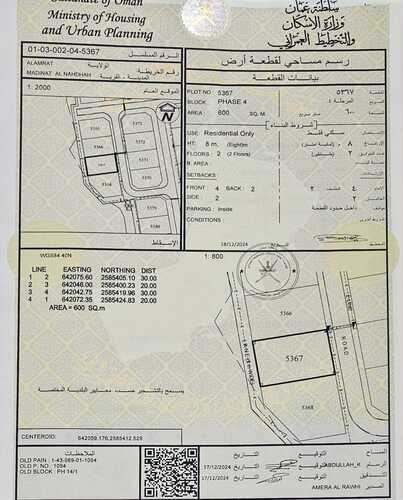 Sultanate of Oman
Ministry of Housing
and Urban Planning
سلطنة عمان
وزارة الإسكان
والتخطيط العمراني
01-03-002-04-5367
الرقم المسلسل
رسم مساحي لقطعة أرض
ALAMRAT
الولاية
MADINAT AL NAHDHAH
المدينة - القرية
رقم الخريطة
بيانات القطعة
1: 2000
الموقع العام
PLOT NO
5367
٥٣٦٧
BLOCK
PHASE 4
المرحلة ٤
المربع
AREA
600
SQ. M.
متر مربع
٦٠٠
شروط البناء
USE:
Residential Only
سكني فقط
HT:
8 m.
٨ م
FLOORS :
2
(2 Floors)
٢
B. AREA
SETBACKS:
FRONT :
4
BACK :
2
٤
٢
SIDE :
2
٢
PARKING :
Inside
داخل حدود القطعة
CONDITIONS
18/12/2024
5360
5372
5371
5366
5367
5370
5368
الإسقاط
WGS84 40N
LINE EASTING NORTHING DIST
1 2 642075.60 2585405.10 30.00
2 3 642046.00 2585400.23 20.00
3 4 642042.75 2585419.96 30.00
4 1 642072.35 2585424.83 20.00
AREA = 600 SQ.m
1: 800
5366
5367
5368
ROAD
LANE
يسمح بالتشجير حسب معايير البلدية المختصة
CENTEROID:
642059.176,2585412.529
الملاحظات
OLD PAIN : 1-43-089-01-1094
OLD P. NO. : 1094
OLD BLOCK : PH 14/1
التاريخ
التوقيع
المساح
17/12/2024
ABDULLAH_K
التاريخ
التوقيع
17/12/2024
AMERA AL RAWHI